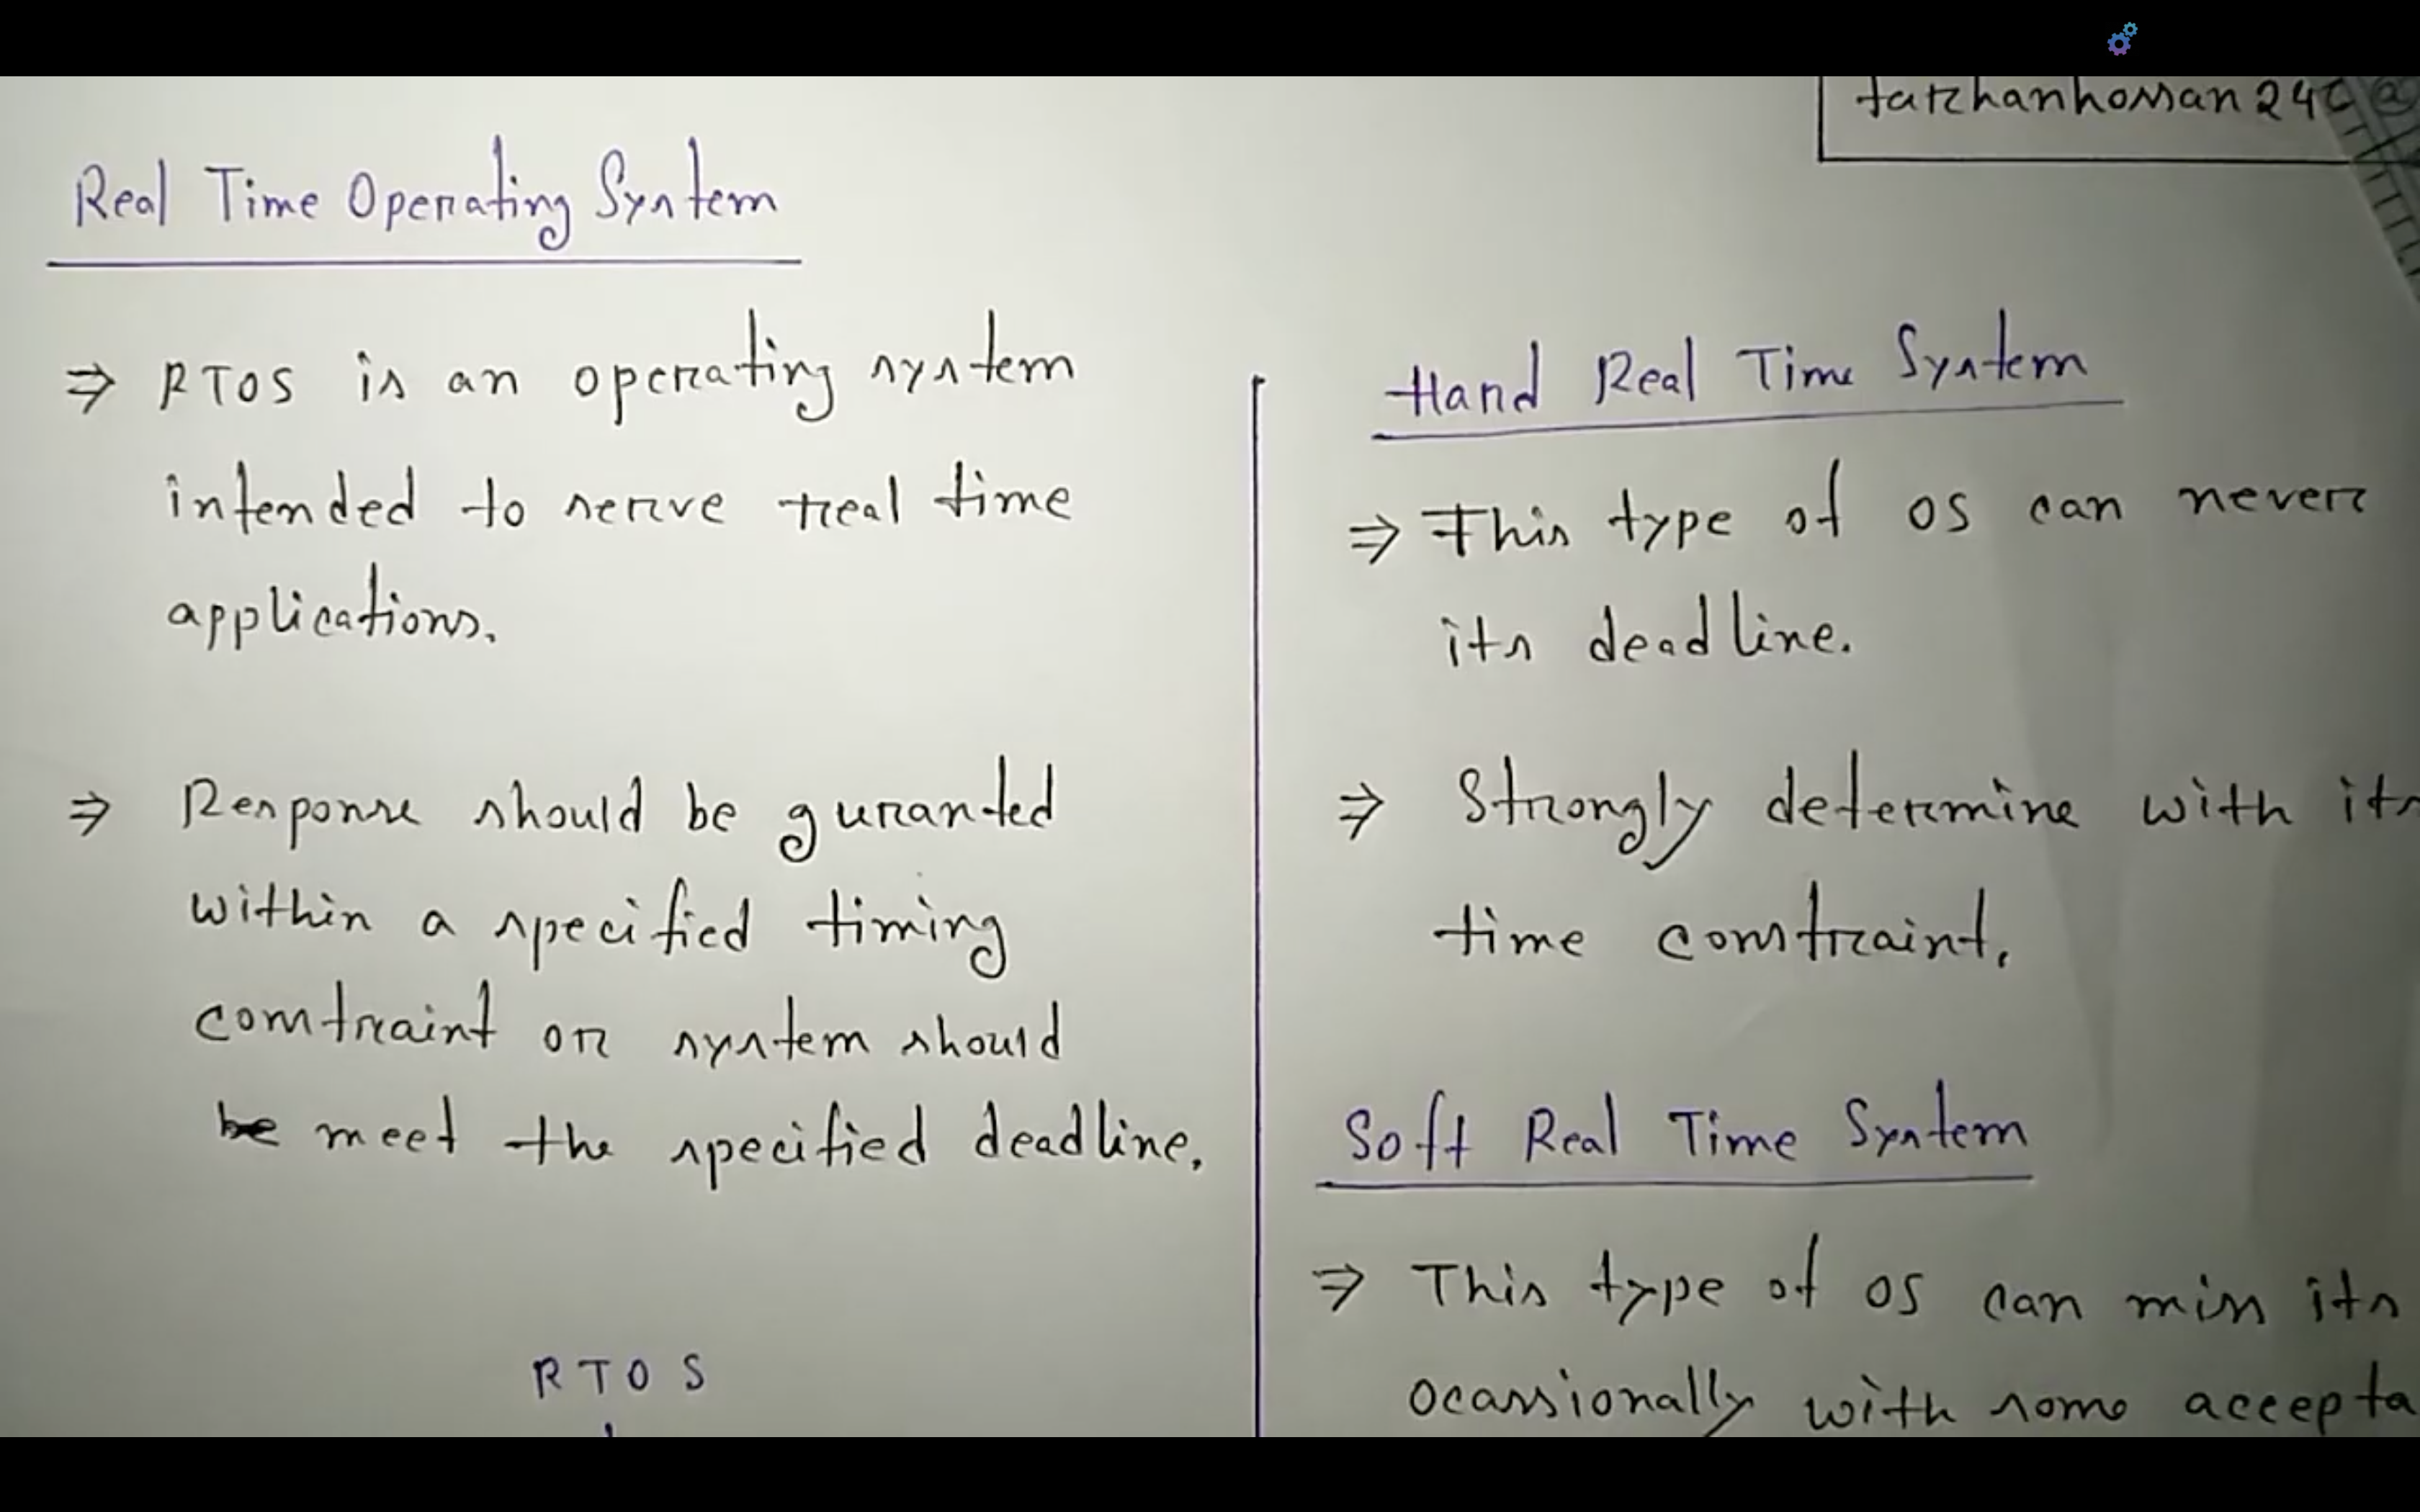 farhanhossan24
Real Time Operating System
⇒ RTOS is an operating system
intended to serve real time
applications.
⇒ Response should be guranted
within a specified timing
constraint or system should
meet the specified deadline.
RTOS
Hard Real Time System
⇒ This type of OS can never
its deadline.
⇒ Strongly determine with its
time constraint.
Soft Real Time System
⇒ This type of OS can miss its
ocassionally with some accepta